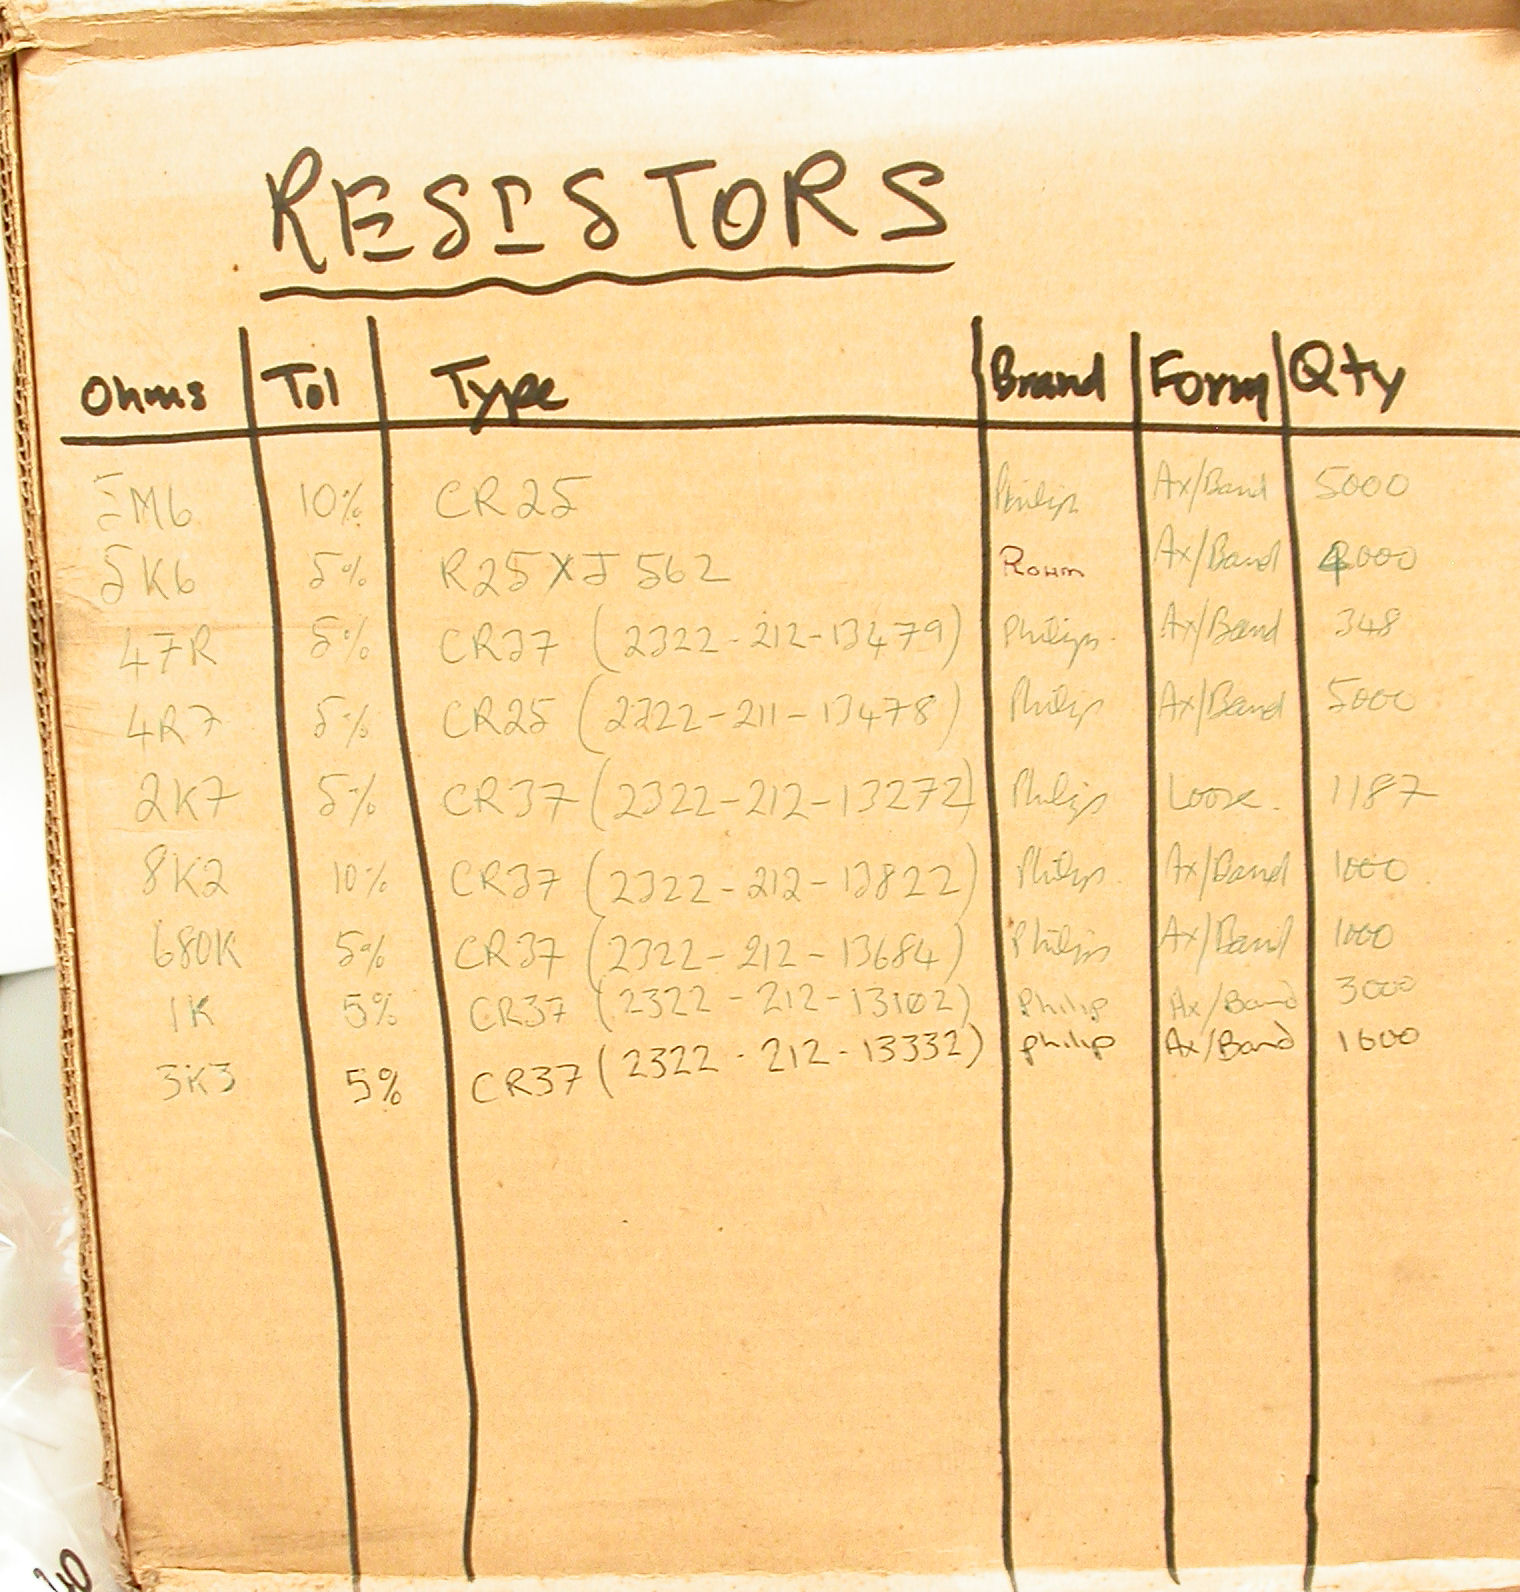 RESISTORS
Ohms Tol Type Brand Form Qty
5M6 10% CR25 Philips Ax/Band 5000
5K6 5% R25XJ562 Rohm Ax/Band 4000
47R 5% CR37 (2322-212-13479) Philips. Ax/Band 348
4R7 5% CR25 (2322-211-13478) Philips Ax/Band 5000
2K7 5% CR37 (2322-212-13272) Philips Loose. 1187
8K2 10% CR37 (2322-212-13822) Philips. Ax/Band 1000
680K 5% CR37 (2322-212-13684) Philips Ax/Band 1000
1K 5% CR37 (2322-212-13102) Philip Ax/Band 3000
3K3 5% CR37 (2322-212-13332) philip Ax/Band 1600